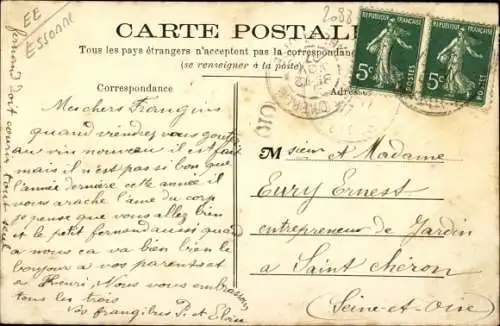 EE
Essonne
2083
CARTE POSTALE
Tous les pays étrangers n'acceptent pas la correspondance
(se renseigner à la poste)
Correspondance
Adresse
RÉPUBLIQUE FRANÇAISE
5c
POSTES
RÉPUBLIQUE FRANÇAISE
5c
POSTES
Mes chers Frangins
quand viendrez vous goutez
au vin nouveau il est fait
mais il n'est pas si bon que
l'année dernière cette année il
vous arache l'ame du corp
je pense que vous allez bien
et le petit fernand aussi quand
a nous ca va bien bien le
bonjour a vos parents et
a Henri Nous vous embrassons
tous les trois
Vos frangibus P. et Eloise
fernand doit courir tout seul
Monsieur et Madame
Eury Ernest
entrepreneur de Jardin
a Saint Chéron
(Seine-et-Oise)